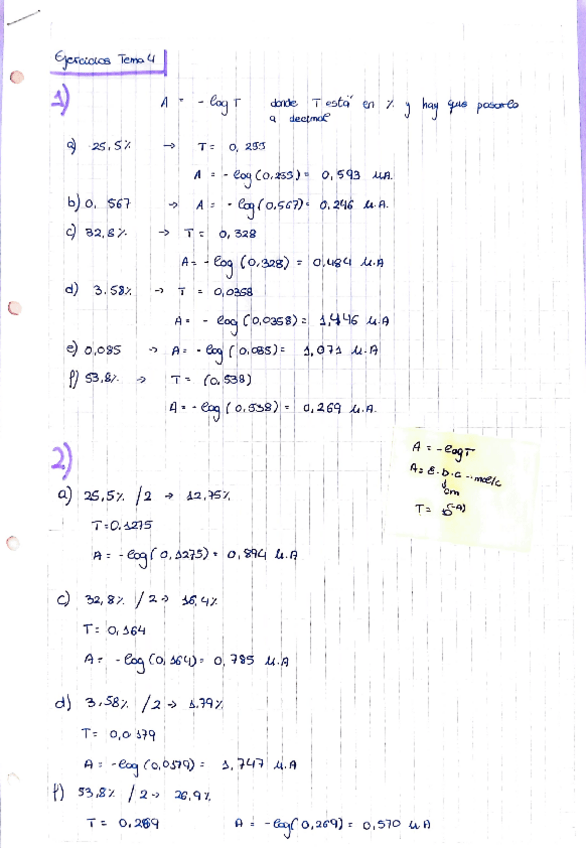 Ejercicios Tema 4
1)
A = - log T donde T está en % y hay que pasarlo
a decimal
a) 25,5% → T = 0,255
A = - log (0,255) = 0,593 u.A.
b) 0,567 → A = - log (0,567) = 0,246 u.A.
c) 32,8% → T = 0,328
A = - log (0,328) = 0,484 u.A
d) 3.58% → T = 0,0358
A = - log (0,0358) = 1,446 u.A
e) 0,085 → A = - log (0.085) = 1,071 u.A
f) 53,8% → T = (0,538)
A = - log (0,538) = 0,269 u.A.
2)
a) 25,5% /2 → 12,75%
T = 0.1275
A = - log (0,1275) = 0,894 u.A
c) 32,8% /2 → 16,4%
T = 0,164
A = - log (0,164) = 0,785 u.A
d) 3,58% /2 → 1.79%
T = 0,0179
A = - log (0,0179) = 1,747 u.A
f) 53,8% /2 → 26,9%
T = 0,269 A = - log (0,269) = 0,570 u.A
A = - log T
A = ε · b · c
cm
T = 10^(-A)